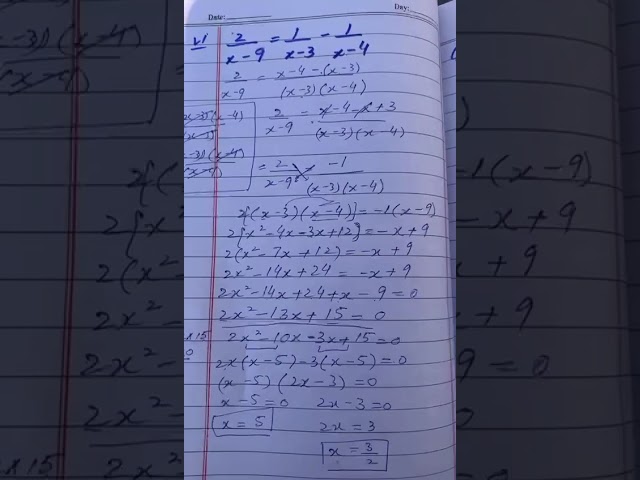 Date: Day:
vi 2/(x-9) = 1/(x-3) - 1/(x-4)
2/(x-9) = (x-4-(x-3))/((x-3)(x-4))
2/(x-9) = (x-4-x+3)/((x-3)(x-4))
= 2/(x-9) -1/((x-3)(x-4))
2{(x-3)(x-4)} = -1(x-9)
2{x²-4x-3x+12} = -x+9
2(x²-7x+12) = -x+9
2x²-14x+24 = -x+9
2x²-14x+24+x-9 = 0
2x²-13x+15 = 0
2x²-10x-3x+15 = 0
2x(x-5)-3(x-5) = 0
(x-5)(2x-3) = 0
x-5=0 2x-3=0
x = 5 2x = 3
x = 3/2